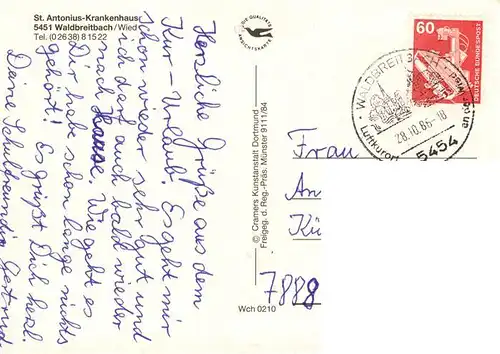 St. Antonius-Krankenhaus
5451 Waldbreitbach/Wied
Tel. (02638) 81522
Herzliche Grüße aus dem
Kur-Urlaub. Es geht mir
schon wieder sehr gut und
ich darf auch bald wieder
nach Hause. Wie geht es
Dir, habe schon lange nichts
gehört! Es grüßt Dich herzl.
Deine Schulfreundin Gertrud
DIE QUALITÄTS
ANSICHTSKARTE
© Cramers Kunstanstalt Dortmund —
Freigeg. d. Reg.-Präs. Münster 9111/84
Wch 0210
60
DEUTSCHE BUNDESPOST
WALDBREITB
28.10.86-18
Luftkurort
5454
Frau
An
Kü
7888